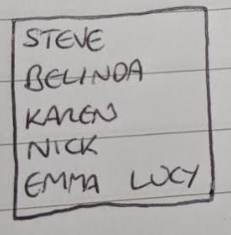 STEVE
BELINDA
KAREN
NICK
EMMA LUCY